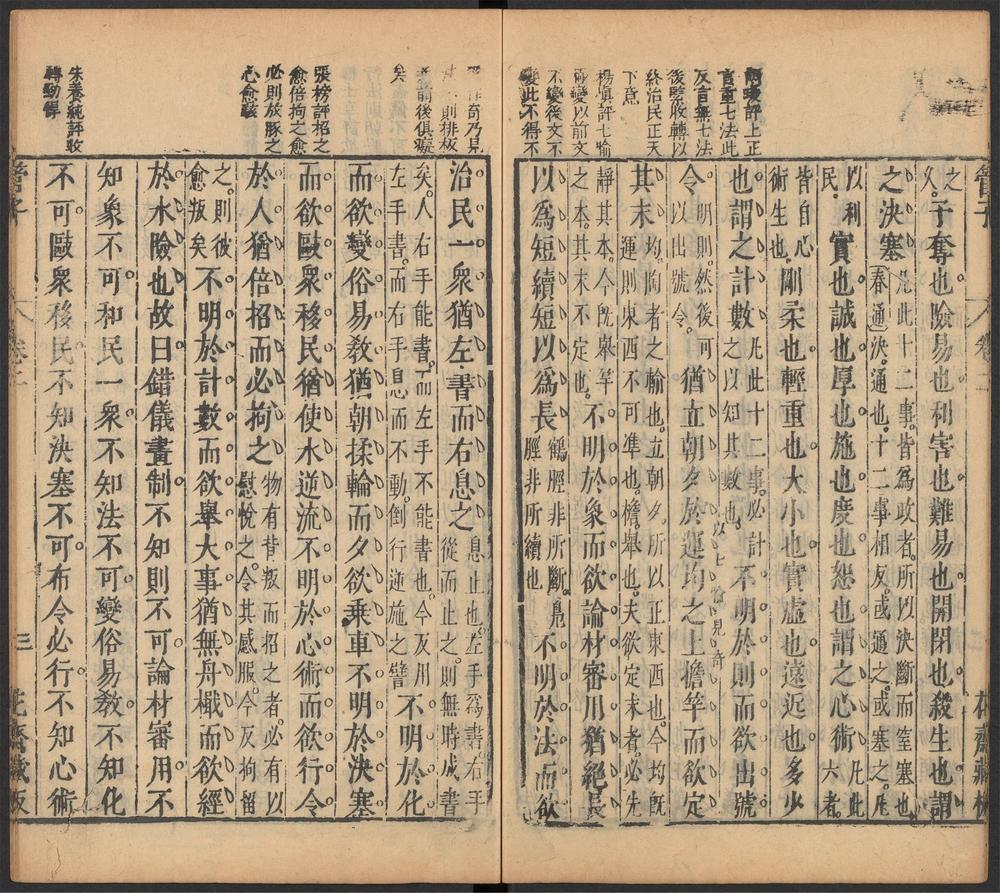 雨暖評上正
言重七法此
反言無七法
後驟收轉以
終治民正天
下意
楊慎評七喻
兩變以前文
不變後文不
變此不得不
之久。予奪也險易也利害也難易也開閉也殺生也謂
之決塞凡此十二事。皆爲政者。所以決斷而窒塞也春通決。通也。十二事相反。或通之。或塞之。凡
以利民。實也誠也厚也施也度也恕也謂之心術凡此六者。
皆自心術生也。剛柔也輕重也大小也實虛也遠近也多少
也謂之計數凡此十二事。必計之以知其數也。不明於則而欲出號
令明則。然後可以出號令。猶立朝夕於運均之上擔竿而欲定
其末均。陶者之輪也。立朝夕。所以正東西也。今均既運則東西不可準也。檐。舉也。夫欲定末者必先
靜其本。今既舉竿之本。其末不定也。不明於象而欲論材審用猶絕長
以爲短續短以爲長鶴脛非所斷。鳧脛非所續也不明於法而欲
以七喻見奇
奇乃見
則排板
前後俱凝
矣
張榜評招之
愈倍拘之愈
必則放豚之
心愈駭
朱養純評收
轉勁悍
治民一衆猶左書而右息之息止也。左手爲書。右手從而止之。則無時成書
矣。人右手能書。而左手不能書也。今反用左手書。而右手息而不動。倒行逆施之譬不明於化
而欲變俗易教猶朝揉輪而夕欲乘車不明於決塞
而欲敺衆移民猶使水逆流不明於心術而欲行令
於人猶倍招而必拘之物有背叛而招之者。必有以慰悅之。令其感服。今反拘留
之。則彼愈叛矣不明於計數而欲舉大事猶無舟檝而欲經
於水險也故曰錯儀畫制不知則不可論材審用不
知象不可和民一衆不知法不可變俗易教不知化
不可敺衆移民不知決塞不可布令必行不知心術
管子
卷二
三
花齋藏板